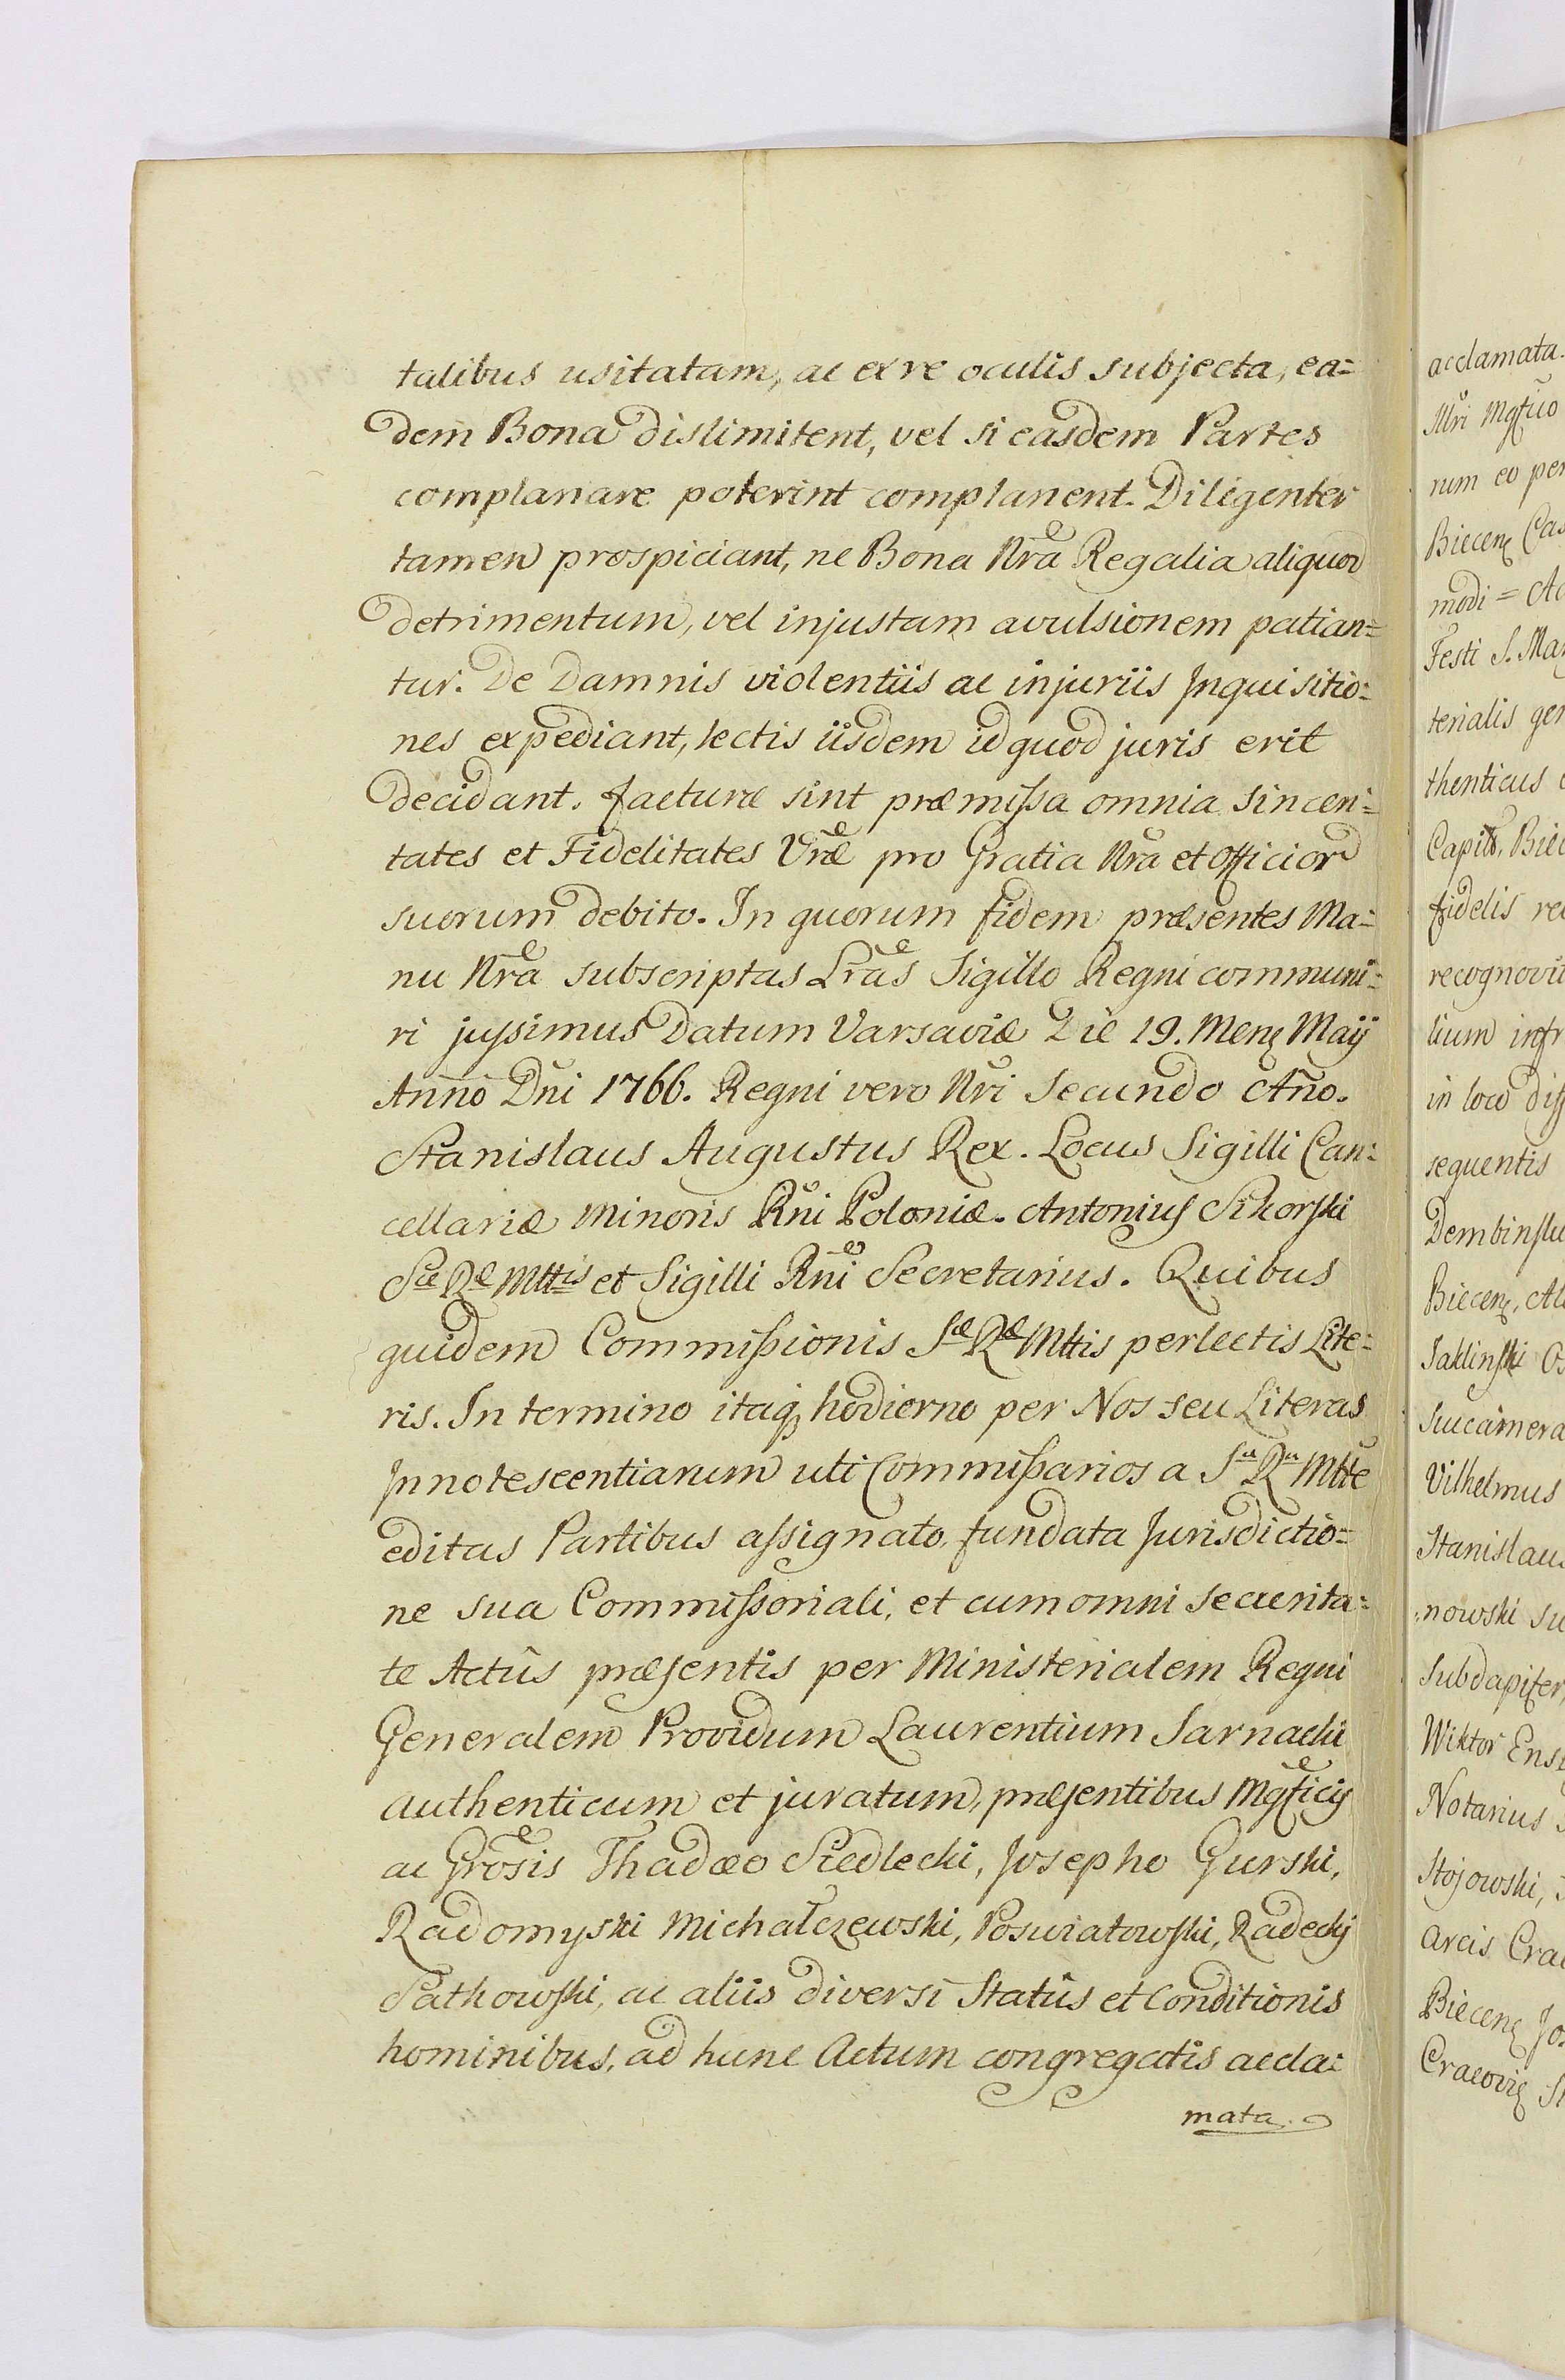 talibus usitatam, ac ex re oculis subjecta, ea=
dem Bona dislimitent, vel si easdem Partes
complanare poterint complanent. Diligenter
tamen prospiciant, ne Bona Nra Regalia aliquod
detrimentum, vel injustam avulsionem patian=
tur. De Damnis violentiis ac injuriis Inquisitio=
nes expediant, lectis iisdem id quod juris erit
decidant. facturæ sint præmissa omnia Sinceri=
tates et Fidelitates Vræ pro Gratia Nra et Officior
suorum debito. In quorum fidem præsentes Ma=
nu Nra subscriptas Lras Sigillo Regni communi=
ri jussimus Datum Varsaviæ Die 19. Mens Maij
Anno Dni 1766. Regni vero Nri Secundo Año.
Stanislaus Augustus Rex. Locus Sigilli Can=
cellariæ Minoris Rni Poloniæ. Antonius Sikorski
Sæ Ræ Mttis et Sigilli Rni Secretarius. Quibus
quidem Commissionis Sæ Ræ Mttis perlectis Lite=
ris. In termino itaq hodierno per Nos seu Literas
Innotescentiarum uti Commissarios a Sa Ra Mtte
editas Partibus assignato, fundata Jurisdictio=
ne sua Commissoriali, et cum omni securita=
te Actûs præsentis per Ministerialem Regni
Generalem Providum Laurentium Sarnacki
authenticum et juratum, præsentibus Mgficis
ac Grosis Thadæo Siedlecki, Josepho Gurski,
Radomyski Michałczewski, Poswiatowski, Radecki
Sathowski, ac aliis diversi Statûs et Conditionis
hominibus, ad hunc Actum congregatis accla=
mata.
acclamata.
Illri Mgfico
rum eo per
Biecens Cas
modi = Ac
Festi S. Mar
terialis gen
thenticus
Capit, Biec
fidelis re
recognovit
lium infr
in loco diff
sequentis
Dembinski
Biecens,
Jaklinski
Succamera
Vilhelmus
Stanislaus
nowski Su
Subdapifer,
Wiktor Ens
Notarius
Stojowski,
Arcis Cra
Biecens Jo
Cracovis